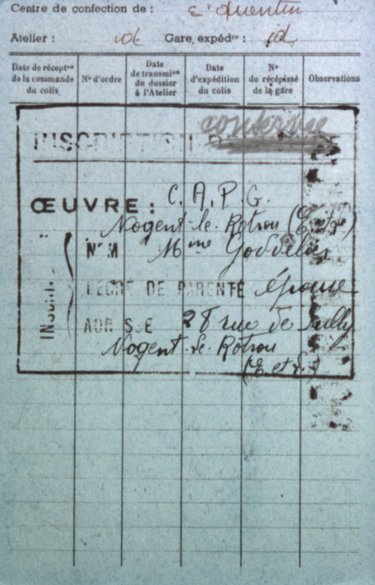 Centre de confection de : St Quentin
Atelier : id Gare, expédre : id
Date de réceptn de la commande du colis
N° d'ordre
Date de transmion du dossier à l'Atelier
Date d'expédition du colis
N° du récépissé de la gare
Observations
INSCRIPTION
ŒUVRE : C.A.P.G.
Nogent-le-Rotrou (E. et L.)
NOM Mme
DEGRÉ DE PARENTÉ épouse
ADRESSE 28 rue de Sully
Nogent-le-Rotrou
(E. et L.)